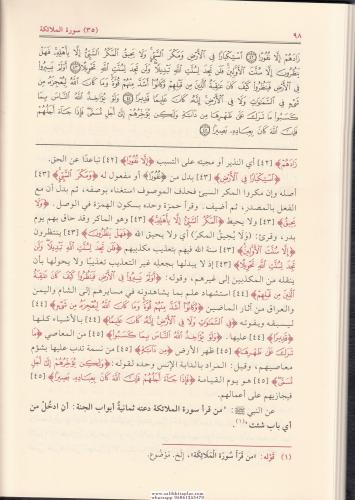 ٩٨
(٣٥) سورة الملائكة
زَادَهُمْ إِلَّا نُفُورًا ٤٢ ٱسْتِكْبَارًا فِي ٱلْأَرْضِ وَمَكْرَ ٱلسَّيِّئِ وَلَا يَحِيقُ ٱلْمَكْرُ ٱلسَّيِّئُ إِلَّا بِأَهْلِهِ فَهَلْ
يَنظُرُونَ إِلَّا سُنَّتَ ٱلْأَوَّلِينَ فَلَن تَجِدَ لِسُنَّتِ ٱللَّهِ تَبْدِيلًا وَلَن تَجِدَ لِسُنَّتِ ٱللَّهِ تَحْوِيلًا ٤٣ أَوَلَمْ يَسِيرُوا
فِي ٱلْأَرْضِ فَيَنظُرُوا كَيْفَ كَانَ عَٰقِبَةُ ٱلَّذِينَ مِن قَبْلِهِمْ وَكَانُوا أَشَدَّ مِنْهُمْ قُوَّةً وَمَا كَانَ ٱللَّهُ لِيُعْجِزَهُ مِن
شَيْءٍ فِي ٱلسَّمَٰوَٰتِ وَلَا فِي ٱلْأَرْضِ إِنَّهُ كَانَ عَلِيمًا قَدِيرًا ٤٤ وَلَوْ يُؤَاخِذُ ٱللَّهُ ٱلنَّاسَ بِمَا
كَسَبُوا مَا تَرَكَ عَلَىٰ ظَهْرِهَا مِن دَآبَّةٍ وَلَٰكِن يُؤَخِّرُهُمْ إِلَىٰ أَجَلٍ مُّسَمًّى فَإِذَا جَآءَ أَجَلُهُمْ
فَإِنَّ ٱللَّهَ كَانَ بِعِبَادِهِ بَصِيرًا ٤٥
زَادَهُمْ﴾ [٤٢] أي النذير أو مجيئه على التسبب ﴿إِلَّا نُفُورًا﴾ [٤٢] تباعدًا عن الحق.
﴿ٱسْتِكْبَارًا فِي ٱلْأَرْضِ﴾ [٤٣] بدل من ﴿نُفُورًا﴾ أو مفعول له ﴿وَمَكْرَ ٱلسَّيِّئِ﴾ [٤٣]
أصله وإن مكروا المكر السيئ فحذف الموصوف استغناء بوصفه، ثم بدل أن مع
الفعل بالمصدر، ثم أضيف. وقرأ حمزة وحده بسكون الهمزة في الوصل. ﴿وَلَا
يَحِيقُ﴾ [٤٣] ولا يحيط ﴿ٱلْمَكْرُ ٱلسَّيِّئُ إِلَّا بِأَهْلِهِ﴾ [٤٣] وهو الماكر وقد حاق بهم يوم
بدر، وقرئ: (وَلَا يُحِيقُ المكرَ) أي ولا يحيق الله ﴿فَهَلْ يَنظُرُونَ﴾ [٤٣] ينتظرون
﴿إِلَّا سُنَّتَ ٱلْأَوَّلِينَ﴾ [٤٣] سنة الله فيهم بتعذيب مكذبيهم ﴿فَلَن تَجِدَ لِسُنَّتِ ٱللَّهِ تَبْدِيلًا وَلَن
تَجِدَ لِسُنَّتِ ٱللَّهِ تَحْوِيلًا﴾ [٤٣] إذ لا يبدلها بجعله غير التعذيب تعذيبًا ولا يحولها بأن
ينقله من المكذبين إلى غيرهم، وقوله: ﴿أَوَلَمْ يَسِيرُوا فِي ٱلْأَرْضِ فَيَنظُرُوا كَيْفَ كَانَ عَٰقِبَةُ
ٱلَّذِينَ مِن قَبْلِهِمْ﴾ [٤٤] استشهاد علم بما يشاهدونه في مسايرهم إلى الشام واليمن
والعراق من آثار الماضين ﴿وَكَانُوا أَشَدَّ مِنْهُمْ قُوَّةً وَمَا كَانَ ٱللَّهُ لِيُعْجِزَهُ مِن شَيْءٍ﴾ [٤٤]
ليسبقه ويفوته ﴿فِي ٱلسَّمَٰوَٰتِ وَلَا فِي ٱلْأَرْضِ إِنَّهُ كَانَ عَلِيمًا﴾ [٤٤] بالأشياء كلها
﴿قَدِيرًا﴾ [٤٤] عليها. ﴿وَلَوْ يُؤَاخِذُ ٱللَّهُ ٱلنَّاسَ بِمَا كَسَبُوا﴾ [٤٥] من المعاصي ﴿مَا
تَرَكَ عَلَىٰ ظَهْرِهَا﴾ [٤٥] ظهر الأرض ﴿مِن دَآبَّةٍ﴾ [٤٥] من نسمة تدب عليها بشؤم
معاصيهم، وقيل: المراد بالدابة الإنس وحده لقوله: ﴿وَلَٰكِن يُؤَخِّرُهُمْ إِلَىٰ أَجَلٍ
مُّسَمًّى﴾ [٤٥] هو يوم القيامة ﴿فَإِذَا جَآءَ أَجَلُهُمْ فَإِنَّ ٱللَّهَ كَانَ بِعِبَادِهِ بَصِيرًا﴾ [٤٥]
فيجازيهم على أعمالهم.
عن النبي ﷺ: «من قرأ سورة الملائكة دعته ثمانيةُ أبواب الجنة: أن ادخُلْ من
أي باب شئت»(١).
(١) قَوْله: «من قرأ سُورَة الْمَلَائِكَة»، إلَخ. مَوْضُوع.